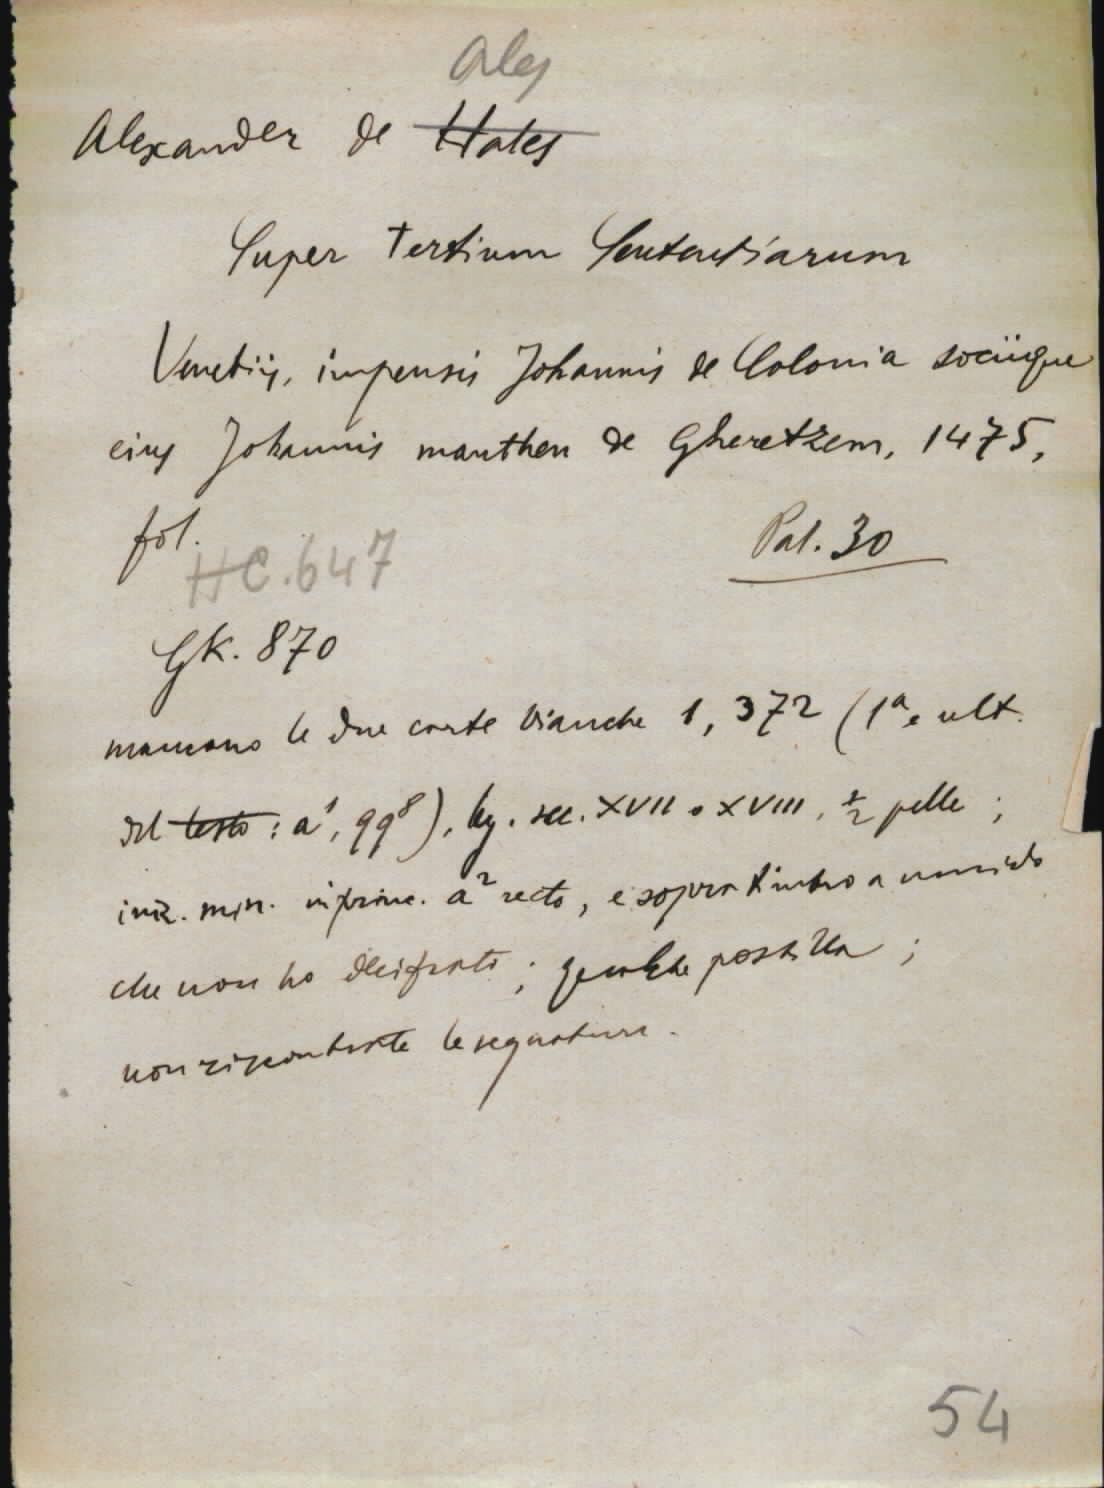 Ales
Alexander de Hales
Super tertium Sententiarum
Venetiis, impensis Johannis de Colonia sociique
eius Johannis manthen de Gheretzem, 1475,
fol.
Pal. 30
HC. 647
GK. 870
mancano le due carte bianche 1, 372 (1ª e ult.
del testo: a¹, qq⁸), leg. sec. XVII o XVIII, ½ pelle;
iniz. min. in princ. a² recto, e sopra timbro a
che non ho decifrato; qualche postilla;
non riscontrate le segnature.
54